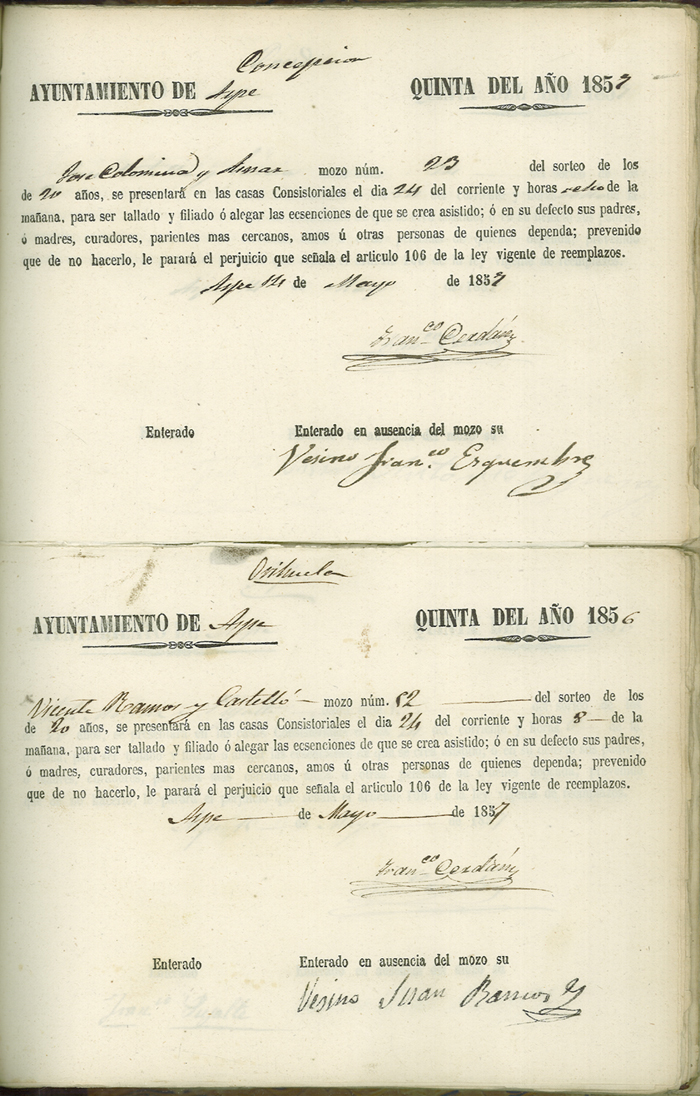 Concepcion
AYUNTAMIENTO DE Aspe QUINTA DEL AÑO 1857
Jose Colomina y mozo núm. 23 del sorteo de los
de 20 años, se presentará en las casas Consistoriales el dia 24 del corriente y horas ocho de la
mañana, para ser tallado y filiado ó alegar las ecsenciones de que se crea asistido; ó en su defecto sus padres,
ó madres, curadores, parientes mas cercanos, amos ú otras personas de quienes dependa; prevenido
que de no hacerlo, le parará el perjuicio que señala el articulo 106 de la ley vigente de reemplazos.
Aspe 14 de Mayo de 1857
Fran.co Cerdán
Enterado Enterado en ausencia del mozo su
Vesino Fran.co Esquembre
Orihuela
AYUNTAMIENTO DE Aspe QUINTA DEL AÑO 1856
Vicente Ramos y Castelló mozo núm. 52 del sorteo de los
de 20 años, se presentará en las casas Consistoriales el dia 24 del corriente y horas 8 de la
mañana, para ser tallado y filiado ó alegar las ecsenciones de que se crea asistido; ó en su defecto sus padres,
ó madres, curadores, parientes mas cercanos, amos ú otras personas de quienes dependa; prevenido
que de no hacerlo, le parará el perjuicio que señala el articulo 106 de la ley vigente de reemplazos.
Aspe de Mayo de 1857
Fran.co Cerdán
Enterado Enterado en ausencia del mozo su
Vesino Juan Ramos